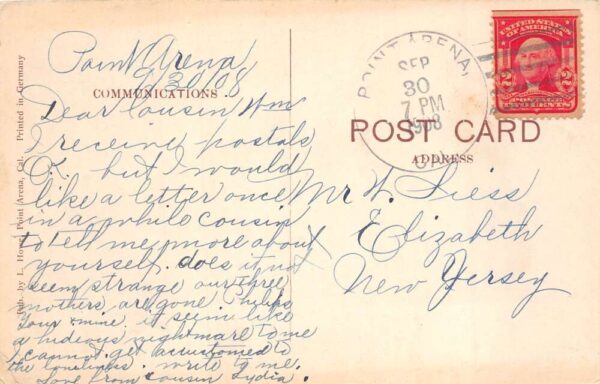 Point Arena
9/30/08
COMMUNICATIONS
Dear Cousin Wm
I receive postals
O.K. but I would
like a letter once
in a while cousin
to tell me more about
yourself. does it not
seem strange our three
mothers are gone Philips
Your & mine. it seem like
a hideous nightmare to me
I cannot get accustomed to
the loneliness. write to me.
Love from cousin Lydia.
Pub. by L. Point Arena, Cal. Printed in Germany
POINT ARENA,
SEP
30
7 PM
1908
CAL.
UNITED STATES
OF AMERICA
2 2
POSTAGE
TWO CENTS
POST CARD
ADDRESS
Mr W. Siess
Elizabeth
New Jersey